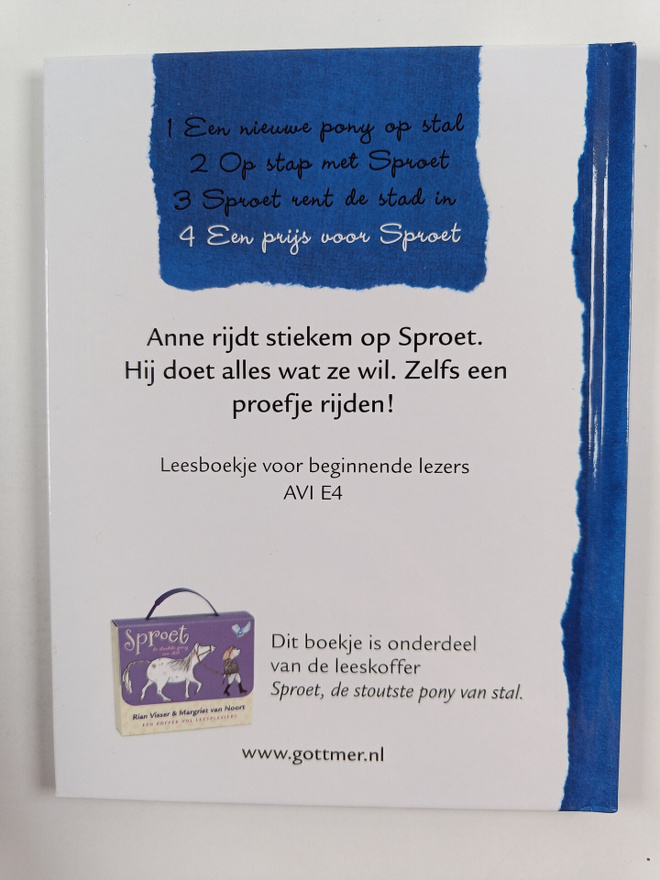 1 Een nieuwe pony op stal
2 Op stap met Sproet
3 Sproet rent de stad in
4 Een prijs voor Sproet
Anne rijdt stiekem op Sproet.
Hij doet alles wat ze wil. Zelfs een
proefje rijden!
Leesboekje voor beginnende lezers
AVI E4
Sproet
de stoutste pony
van stal
Rian Visser & Margriet van Noort
EEN KOFFER VOL LEESPLEZIER!
Dit boekje is onderdeel
van de leeskoffer
Sproet, de stoutste pony van stal.
www.gottmer.nl